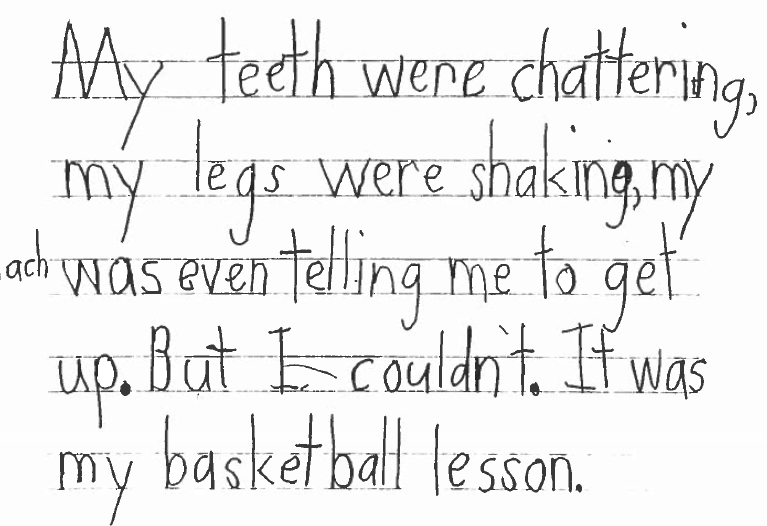 My teeth were chattering,
my legs were shaking, my
ach was even telling me to get
up. But I couldn't. It was
my basketball lesson.